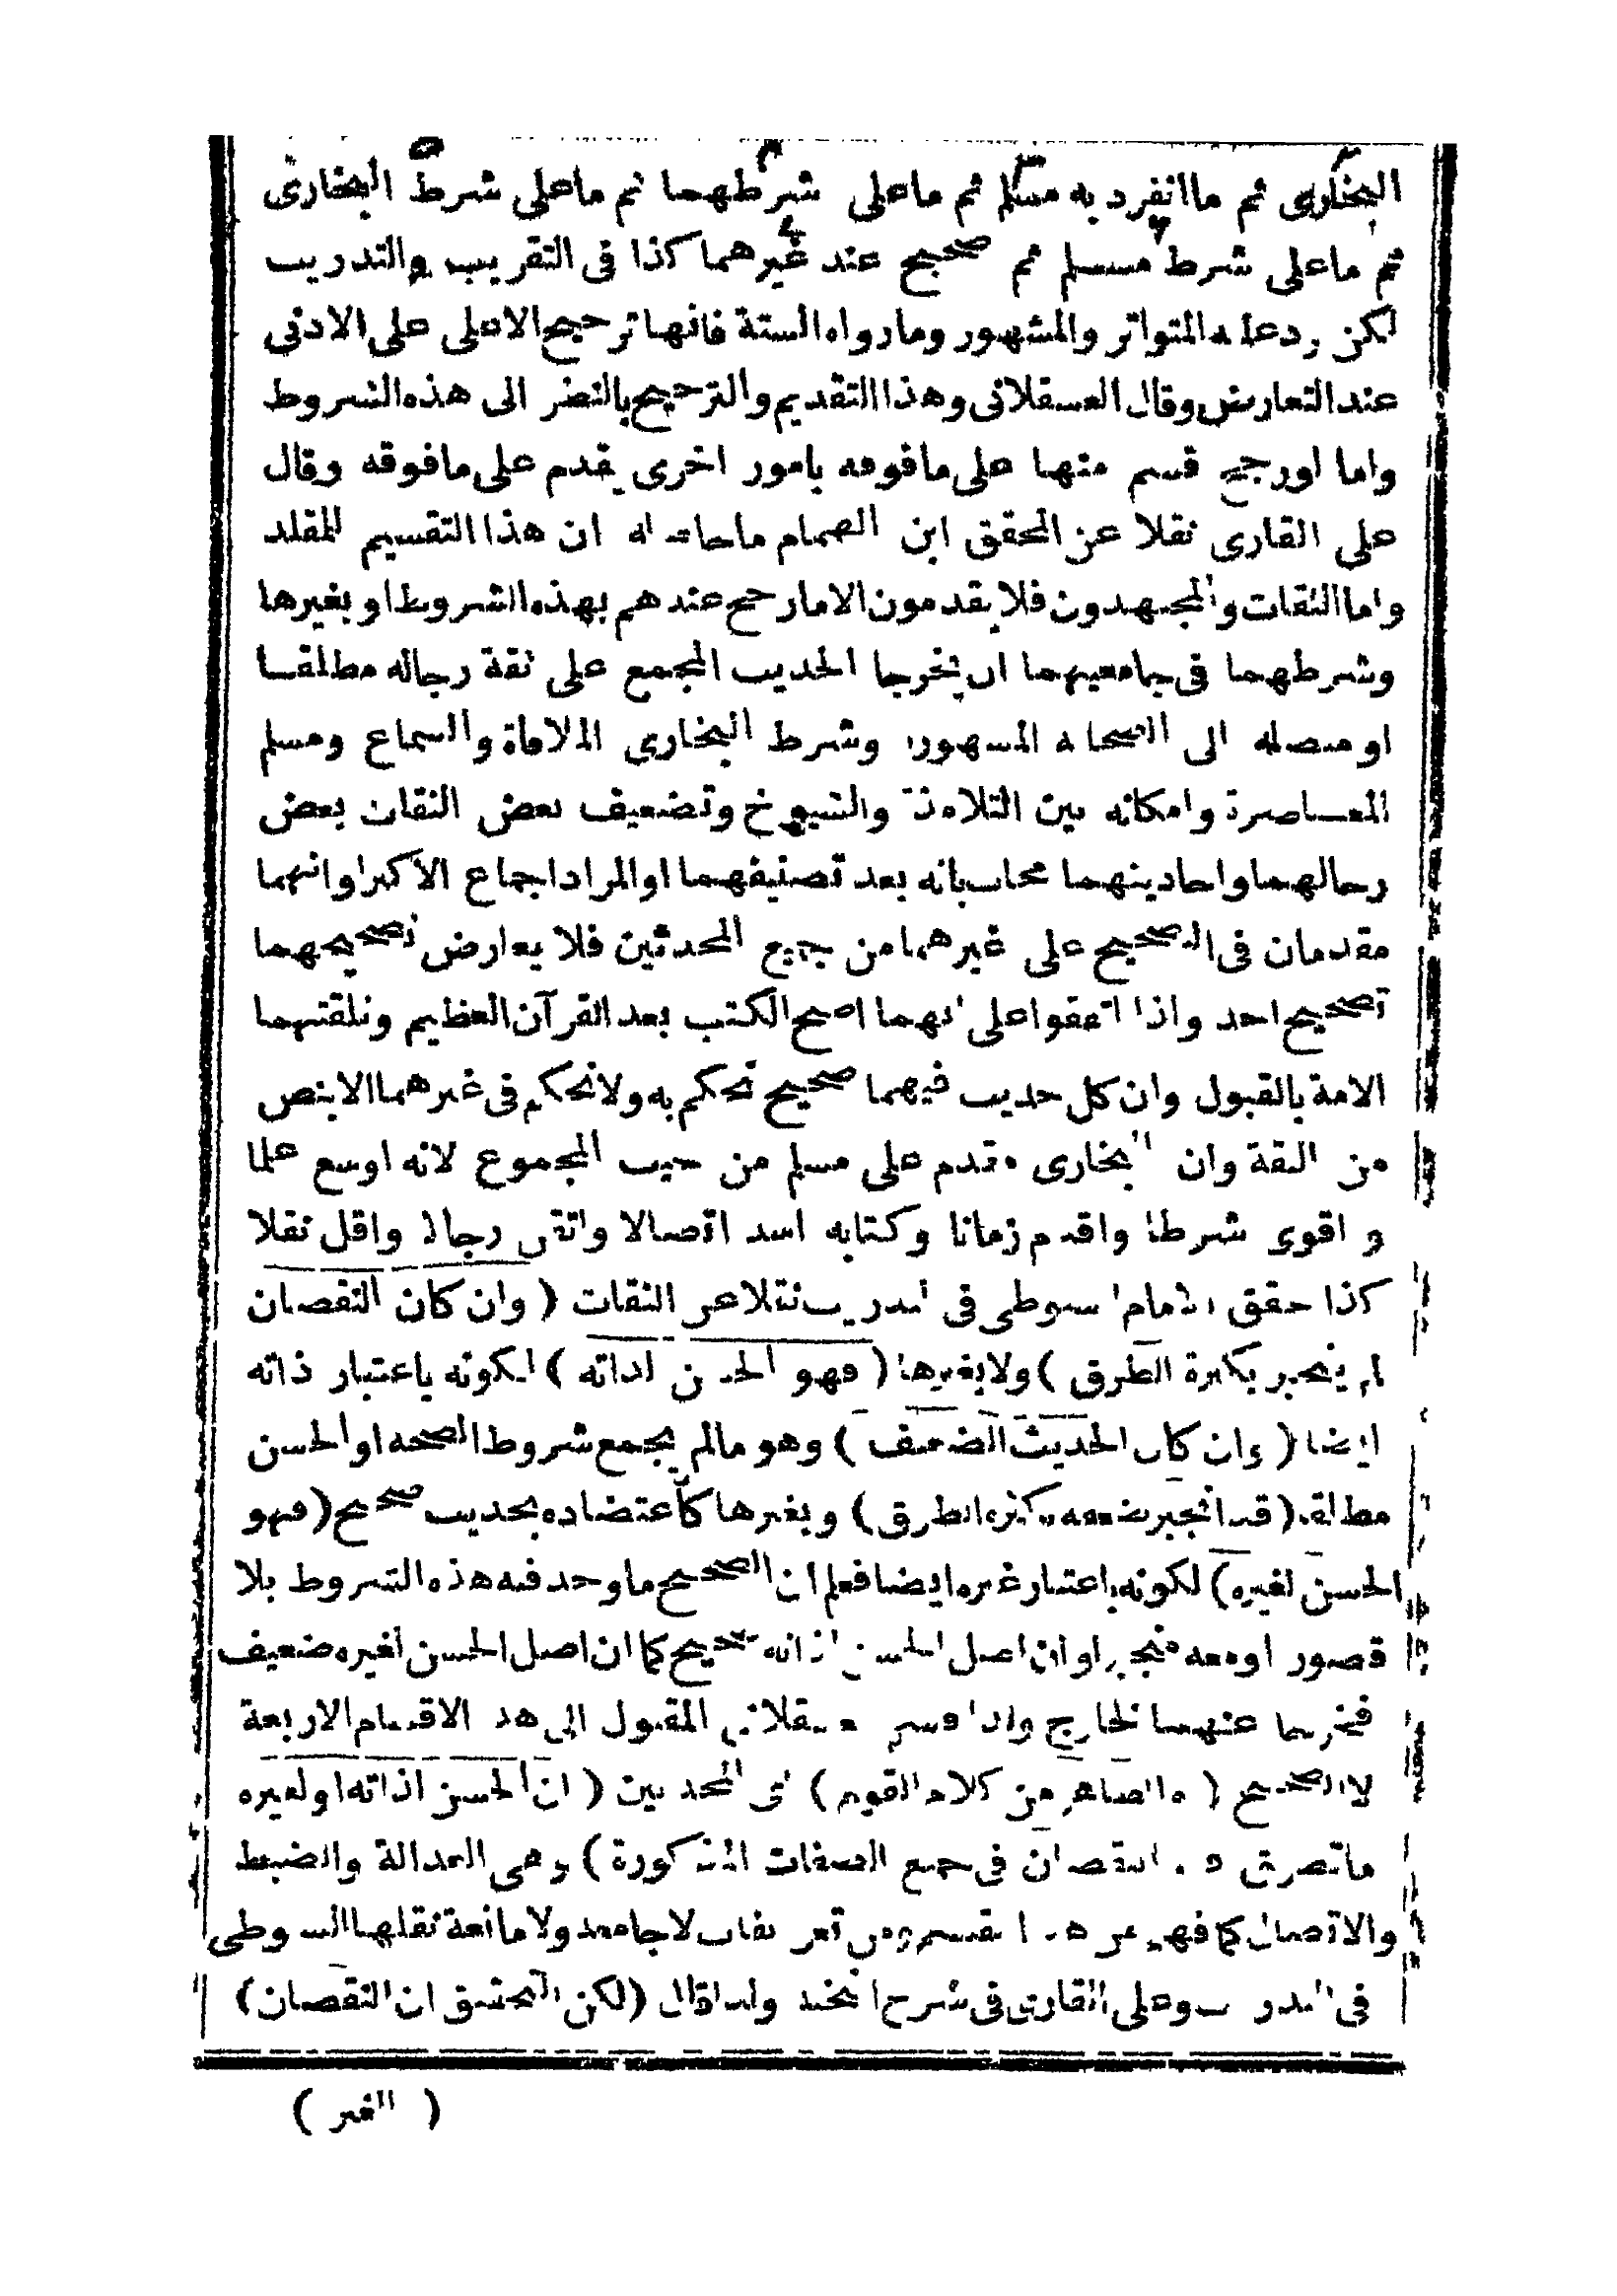 البخارى ثم ماانفرد به مسلم ثم ماعلى شرطهما ثم ماعلى شرط البخارى
ثم ماعلى شرط مسلم ثم صحيح عند غيرهما كذا فى التقريب والتدريب
لكن يرد عليه المتواتر والمشهور ومارواه الستة فانها ترجيح الاعلى على الادنى
عند التعارض وقال العسقلانى وهذا التقديم والترجيح بالنضر الى هذه الشروط
واما لورجح قسم منها على مافوقه بامور اخرى يقدم على مافوقه وقال
على القارى نقلا عن المحقق ابن الهمام ماحاصله ان هذا التقسيم للمقلد
واما الثقات والمجتهدون فلا يقدمون الا مارجح عندهم بهذه الشروط او بغيرها
وشرطهما فى جامعيهما ان يخرجا الحديث المجمع على ثقة رجاله مطلقا
او متصله الى الصحابه المشهور وشرط البخارى الملاقاة والسماع ومسلم
المعاصرة وامكانه بين التلامذة والشيوخ وتضعيف بعض الثقات بعض
رجالهما واحاديثهما مجاب بانه بعد تصنيفهما او المراد اجماع الاكثر وانهما
مقدمان فى الصحيح على غيرهما من جميع المحدثين فلا يعارض تصحيحهما
تصحيح احد واذا اتفقوا على انهما اصح الكتب بعد القرآن العظيم وتلقتهما
الامة بالقبول وان كل حديث فيهما صحيح نحكم به ولا نحكم فى غيرهما الابنص
من الثقة وان البخارى مقدم على مسلم من حيث المجموع لانه اوسع علما
و اقوى شرطا واقدم زمانا وكتابه اسد اتصالا واتقن رجالا واقل نقلا
كذا حقق الامام السيوطى فى التدريب نقلا عن الثقات ( وان كان النقصان
لم ينجبر بكثرة الطرق ) ولا بغيرها ( فهو الحسن لذاته ) لكونه باعتبار ذاته
ايضا ( وان كان الحديث الضعيف ) وهو مالم يجمع شروط الصحه او الحسن
مطلقا ( قد انجبر ضعفه بكثرة الطرق ) وبغيرها كاعتضاده بحديث صحيح ( فهو
الحسن لغيره ) لكونه باعتبار غيره ايضا فعلم ان الصحيح ماوجد فيه هذه الشروط بلا
قصور او معه منجبرا وان اصل الحسن لذاته صحيح كما ان اصل الحسن لغيره ضعيف
فخرجا عنهما لخارج ولذا قسم العسقلانى المقبول الى هذه الاقسام الاربعة
لا الصحيح ( والظاهر من كلام القوم ) اى المحدثين ( ان الحسن لذاته او لغيره
ماتصرق النقصان فى جميع الصفات المذكورة ) وهى العدالة والضبط
والاتصال كما فهم من هذا التقسيم ومن تعريفات لاجامعة ولا مانعة نقلها السيوطى
فى التدريب وعلى القارى فى شرح النخبة ولذا قال ( لكن التحقيق ان النقصان )
( الغير )